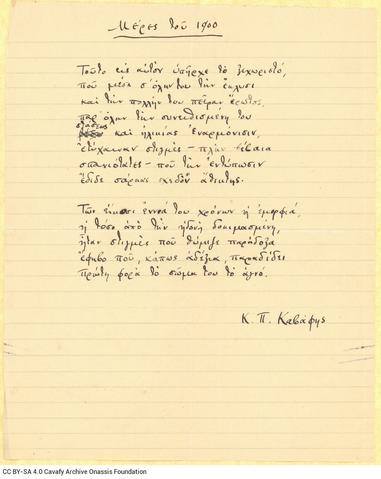 Μέρες τοῦ 1900
Τοῦτο εἰς αὐτὸν ὑπῆρχε τὸ ξεχωριστό,
ποῦ μέσα σ' ὅλην του τὴν ἔκλυσι
καὶ τὴν πολλήν του πεῖραν ἔρωτος,
παρ' ὅλην τὴν συνειθισμένη του
στάσεως
καὶ ἡλικίας ἐναρμόνισιν,
ἐτύχαιναν στιγμὲς — πλὴν βέβαια
σπανιότατες — ποῦ τὴν ἐντύπωσιν
ἔδιδε σάρκας σχεδὸν ἄθικτης.
Τῶν εἴκοσι ἐννηά του χρόνων ἡ ἐμορφιά,
ἡ τόσο ἀπὸ τὴν ἡδονὴ δοκιμασμένη,
ἦταν στιγμὲς ποῦ θύμιζε παράδοξα
ἔφηβο ποῦ, κάπως ἀδέξια, παραδίδει
πρώτη φορὰ τὸ σῶμα του τὸ ἁγνό.
Κ. Π. Καβάφης
CC BY-SA 4.0 Cavafy Archive Onassis Foundation